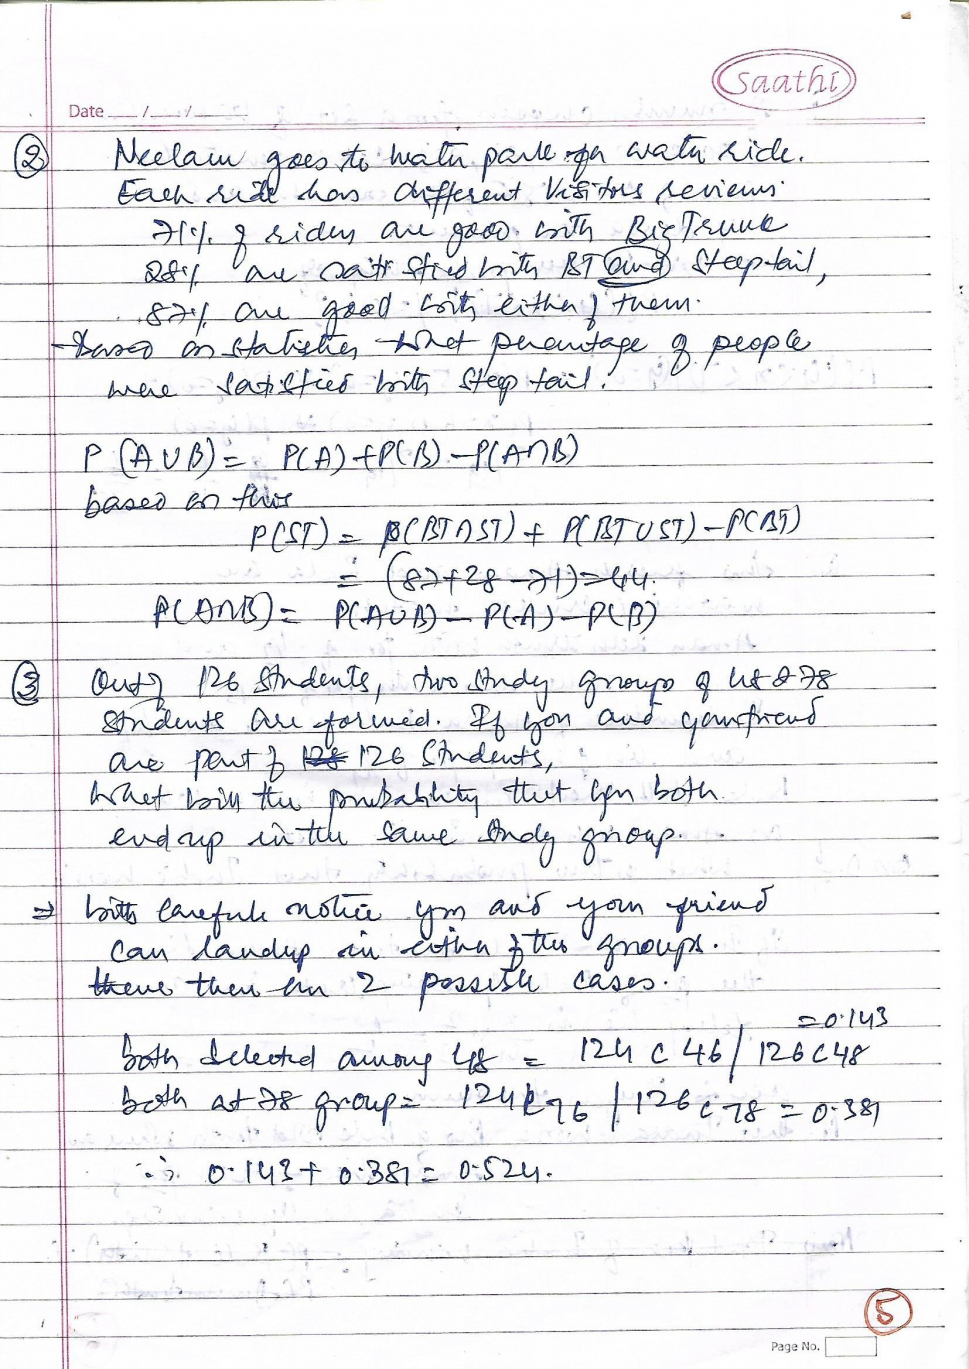 Saathi
Date ___/___/___
② Neelam goes to water park for water ride.
Each ride has different visitors reviews
71% of riders are good with Big Trunk
28% are satisfied with BT and Steeptail,
87% are good with either of them.
Based on statistics what percentage of people
were satisfied with steep tail.
P(A∪B) = P(A)+P(B)-P(A∩B)
based on this
P(ST) = P(BT∩ST) + P(BT∪ST) - P(BT)
= (87+28-71)=44.
P(A∩B) = P(A∪B) - P(A) - P(B)
③ Out of 126 Students, two study groups of 48 & 78
students are formed. If you and your friend
are part of 126 Students,
What will the probability that you both
end up in the same study group.
⇒ with careful notice you and your friend
can landup in either of the groups.
there are 2 possible cases.
=0.143
both selected among 48 = 124 C 46 / 126 C 48
both at 78 group = 124 C 76 / 126 C 78 = 0.381
∴ 0.143 + 0.381 = 0.524.
5
Page No.